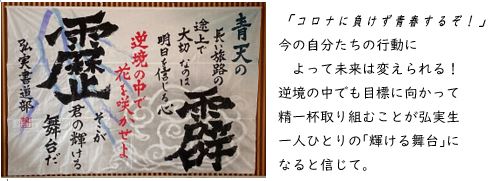 青天の
霹
長い旅路の
途上で
大切なのは
明日を信じる心
逆境の中で
花を咲かせよ
靂
そこが
君の輝ける
舞台だ
弘実書道部
「コロナに負けず青春するぞ！」
今の自分たちの行動に
よって未来は変えられる！
逆境の中でも目標に向かって
精一杯取り組むことが弘実生
一人ひとりの「輝ける舞台」に
なると信じて。